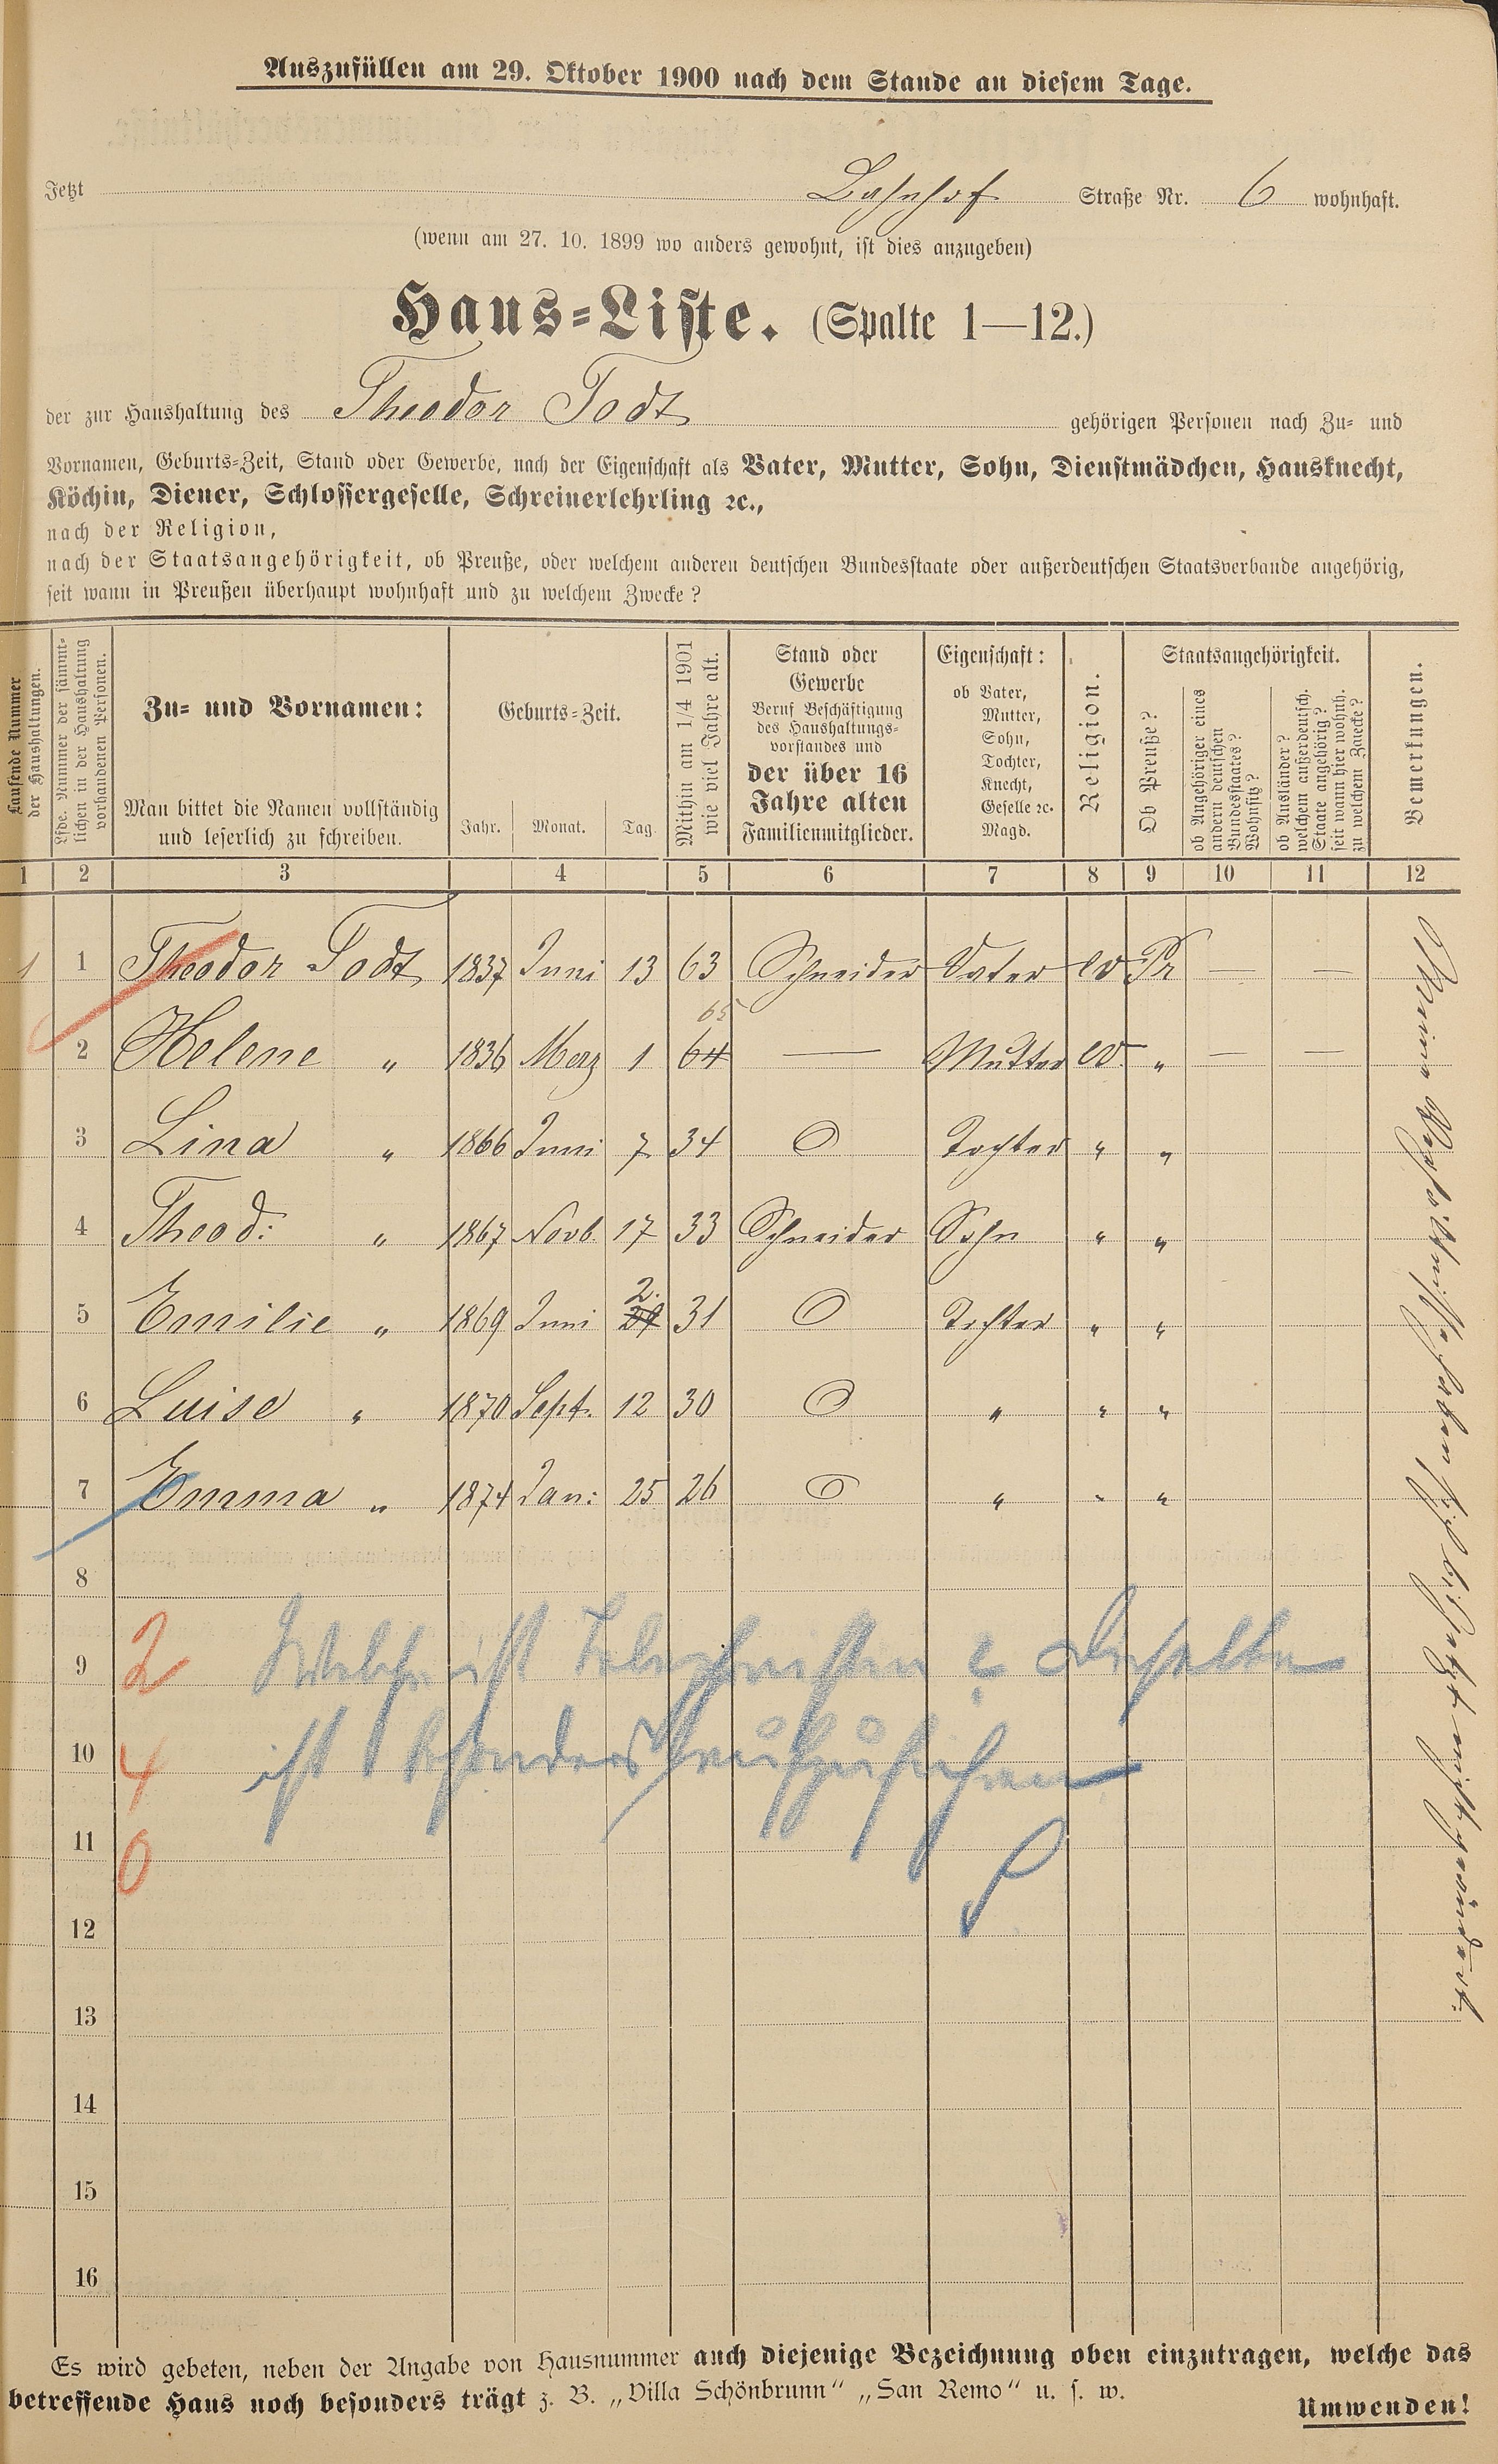 Auszufüllen am 29. Oktober 1900 nach dem Stande an diesem Tage.
Jetzt Bahnhof Straße Nr. 6 wohnhaft.
(wenn am 27. 10. 1899 wo anders gewohnt, ist dies anzugeben)
Haus-Liste. (Spalte 1—12.)
der zur Haushaltung des Theodor Todt gehörigen Personen nach Zu- und
Vornamen, Geburts-Zeit, Stand oder Gewerbe, nach der Eigenschaft als Vater, Mutter, Sohn, Dienstmädchen, Hausknecht,
Köchin, Diener, Schlossergeselle, Schreinerlehrling ꝛc.,
nach der Religion,
nach der Staatsangehörigkeit, ob Preuße, oder welchem anderen deutschen Bundesstaate oder außerdeutschen Staatsverbande angehörig,
seit wann in Preußen überhaupt wohnhaft und zu welchem Zwecke?
Laufende Nummer
der Haushaltungen.
Lfde. Nummer der sämmt-
lichen in der Haushaltung
vorhandenen Personen.
Zu- und Vornamen:
Man bittet die Namen vollständig
und leserlich zu schreiben.
Geburts-Zeit.
Jahr. Monat. Tag.
Mithin am 1/4 1901
wie viel Jahre alt.
Stand oder
Gewerbe
Beruf Beschäftigung
des Haushaltungs-
vorstandes und
der über 16
Jahre alten
Familienmitglieder.
Eigenschaft:
ob Vater,
Mutter,
Sohn,
Tochter,
Knecht,
Geselle ꝛc.
Magd.
Religion.
Staatsangehörigkeit.
Ob Preuße?
ob Angehöriger eines
andern deutschen
Bundesstaates?
Wohnsitz?
ob Ausländer?
welchem außerdeutsch.
Staate angehörig?
seit wann hier wohnh.
zu welchem Zwecke?
Bemerkungen.
1 2 3 4 5 6 7 8 9 10 11 12
1 1 Theodor Todt 1837 Juni 13 63 Schneider Vater ev Pr — —
65
2 Helene " 1836 Merz 1 64 — Mutter ev. " — —
3 Lina " 1866 Juni 7 34 Tochter " "
4 Theod: " 1867 Novb. 17 33 Schneider Sohn " "
2.
5 Emilie " 1869 Juni 29 31 Tochter " "
6 Luise " 1870 Sept. 12 30 " " "
7 Emma " 1874 Jan: 25 26 " " "
8
9 2 Welche ist Telephonistin? Dieselbe
10 4 ist besonders aufzuführen
11 0
12
13
14
15
16
Meine haben sich bis jetzt nicht geändert.
Es wird gebeten, neben der Angabe von Hausnummer auch diejenige Bezeichnung oben einzutragen, welche das
betreffende Haus noch besonders trägt z. B. „Villa Schönbrunn" „San Remo" u. s. w.
Umwenden!